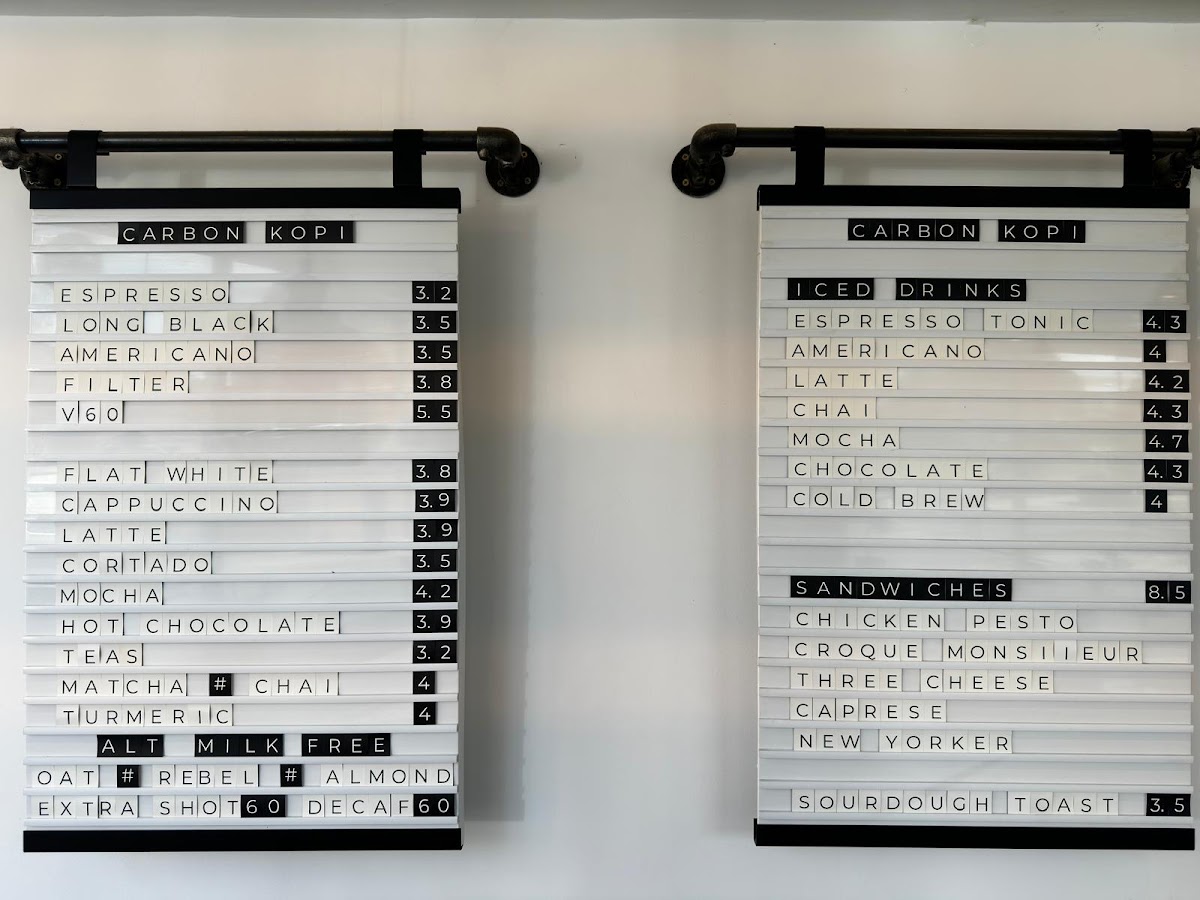 CARBON KOPI
ESPRESSO 3.2
LONG BLACK 3.5
AMERICANO 3.5
FILTER 3.8
V60 5.5
FLAT WHITE 3.8
CAPPUCCINO 3.9
LATTE 3.9
CORTADO 3.5
MOCHA 4.2
HOT CHOCOLATE 3.9
TEAS 3.2
MATCHA # CHAI 4
TURMERIC 4
ALT MILK FREE
OAT # REBEL # ALMOND
EXTRA SHOT60 DECAF60
CARBON KOPI
ICED DRINKS
ESPRESSO TONIC 4.3
AMERICANO 4
LATTE 4.2
CHAI 4.3
MOCHA 4.7
CHOCOLATE 4.3
COLD BREW 4
SANDWICHES 8.5
CHICKEN PESTO
CROQUE MONSIIEUR
THREE CHEESE
CAPRESE
NEW YORKER
SOURDOUGH TOAST 3.5